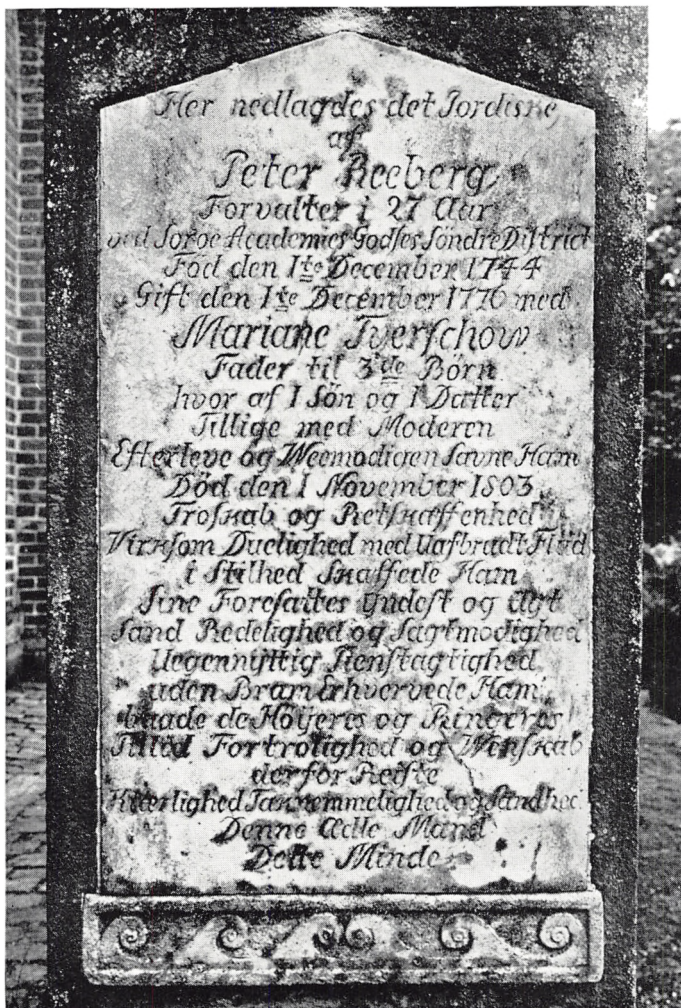 Her nedlagdes det Jordiske
af
Peter Reeberg
Forvalter i 27 Aar
ved Soroe Academies Godses Söndre District
Föd den 1te December 1744
Gift den 1te December 1776 med
Mariane Tverschow
Fader til 3de Börn
hvor af 1 Sön og 1 Datter
Tillige med Moderen
Efterleve og Weemodigen Savne Ham
Död den 1 November 1803
Troskab og Retskaffenhed
Virksom Duelighed med Uafbradt Flid
i Stilhed Skaffede Ham
Sine Foresattes Yndest og Agt
Sand Redelighed og Sagtmodighed
Uegennyttig Tienstagtighed
uden Bram Erhvervede Ham
baade de Höyeres og Ringeres
Tillid Fortrolighed og Wenskab
derfor Reiste
Kiærlighed Taknemmelighed og Sandhed
Denne Ædle Mand
Dette Minde